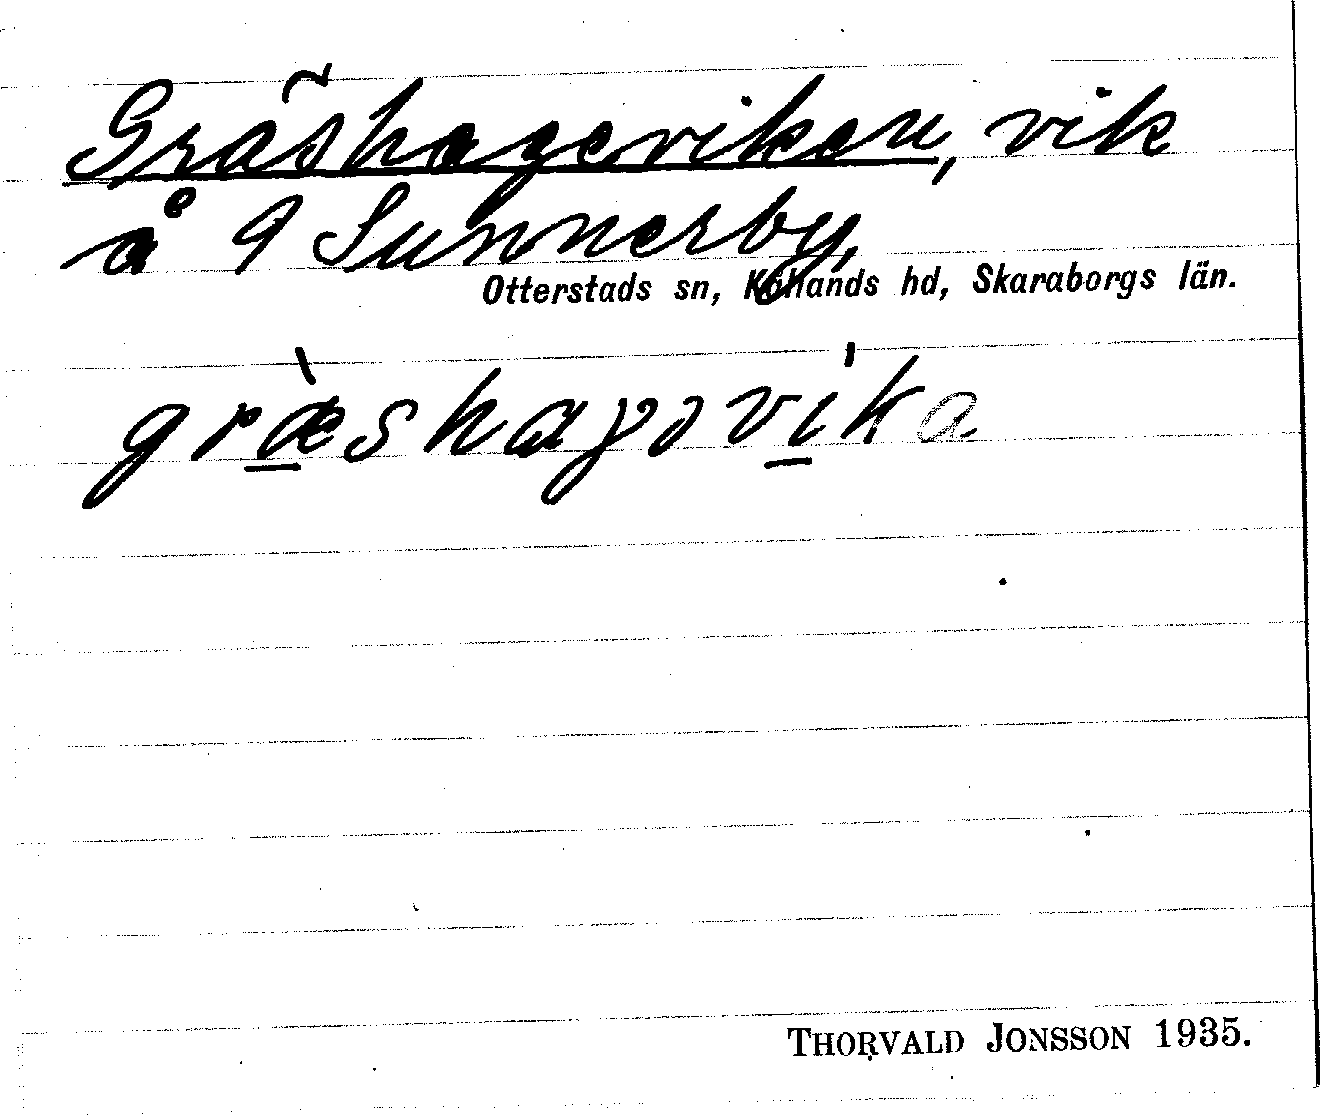 Gräshageviken, vik
å 9 Sunnerby,
Otterstads sn, Kållands hd, Skaraborgs län.
græ̱̀shaγəvi̱ka
THORVALD JONSSON 1935.